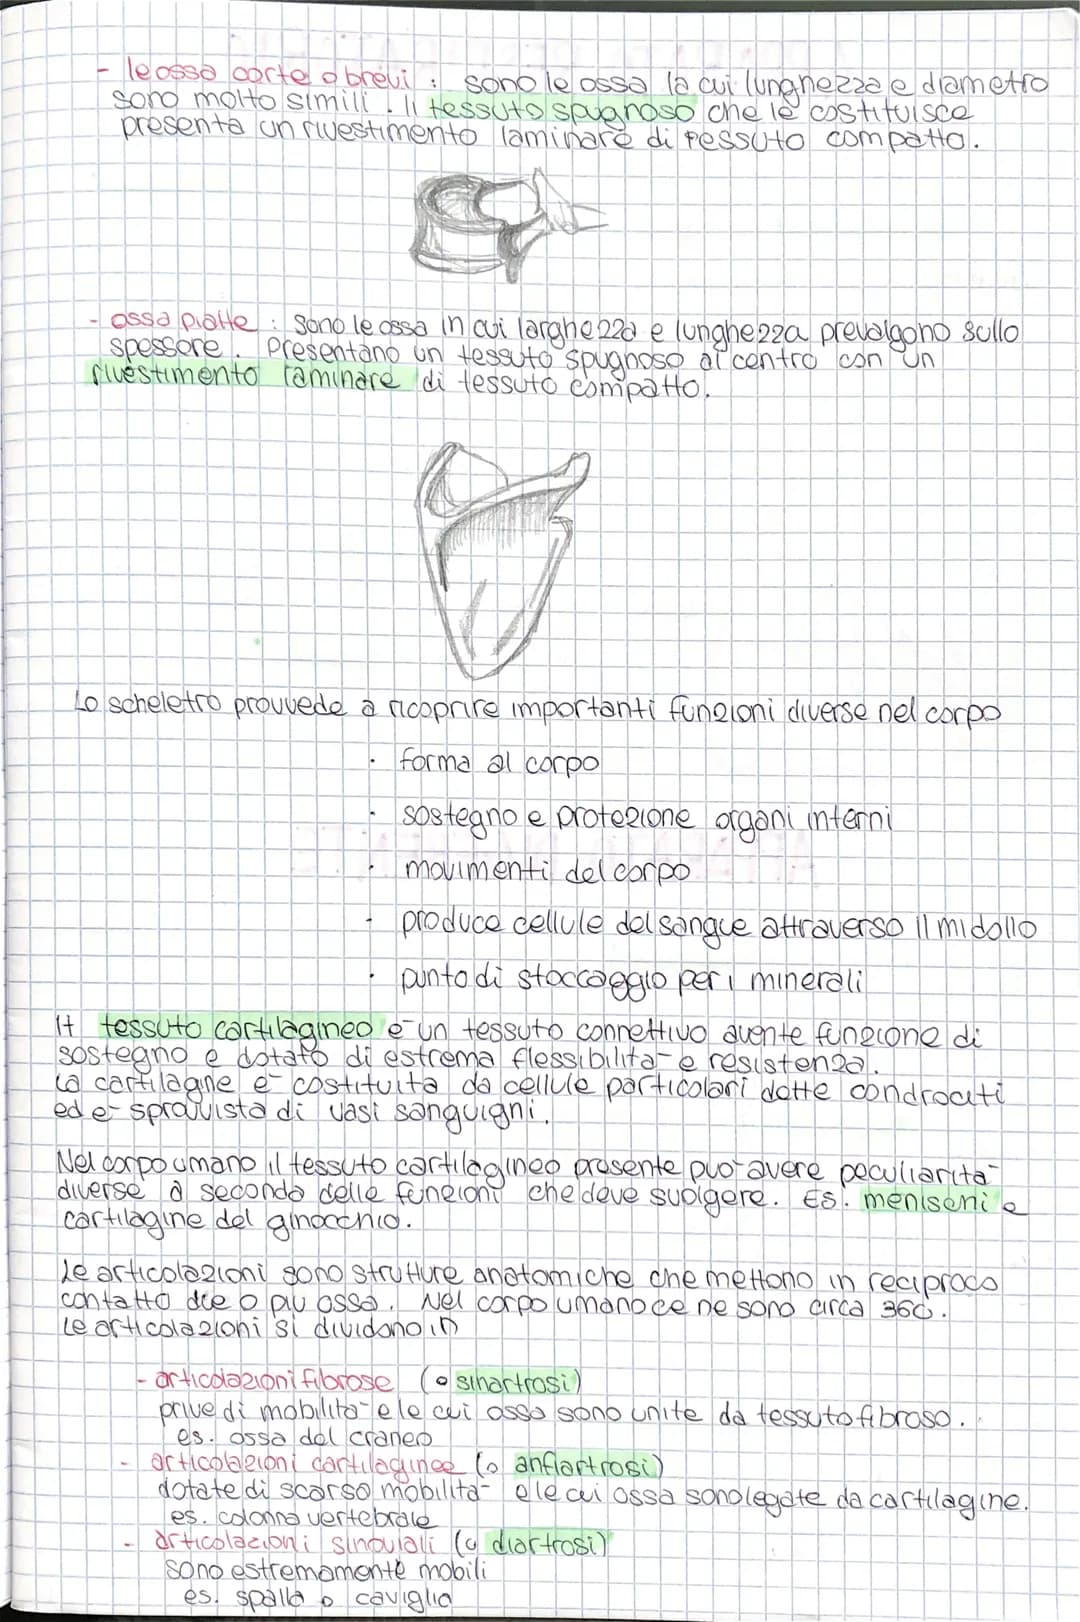 - le ossa corte o brevi : sono le ossa la cui lunghezza e diametro
sono molto simili. Il tessuto spugnoso che le costituisce
presenta un rivestimento laminare di tessuto compatto.
- ossa piatte : sono le ossa in cui larghezza e lunghezza prevalgono sullo
spessore. Presentano un tessuto spugnoso al centro con un
rivestimento laminare di tessuto compatto.
Lo scheletro provvede a ricoprire importanti funzioni diverse nel corpo
· forma al corpo
· sostegno e protezione organi interni
· movimenti del corpo
· produce cellule del sangue attraverso il midollo
· punto di stoccaggio per i minerali
Il tessuto cartilagineo è un tessuto connettivo avente funzione di
sostegno e dotato di estrema flessibilità e resistenza.
La cartilagine è costituita da cellule particolari dette condrociti
ed è sprovvista di vasi sanguigni.
Nel corpo umano il tessuto cartilagineo presente può avere peculiarità
diverse a seconda delle funzioni che deve svolgere. Es. menischi e
cartilagine del ginocchio.
Le articolazioni sono strutture anatomiche che mettono in reciproco
contatto due o più ossa. Nel corpo umano ce ne sono circa 360.
Le articolazioni si dividono in
- articolazioni fibrose (o sinartrosi)
prive di mobilità e le cui ossa sono unite da tessuto fibroso.
es. ossa del cranio
- articolazioni cartilaginee (o anfiartrosi)
dotate di scarso mobilità e le cui ossa sono legate da cartilagine.
es. colonna vertebrale
- articolazioni sinoviali (o diartrosi)
sono estremamente mobili
es. spalla o caviglia